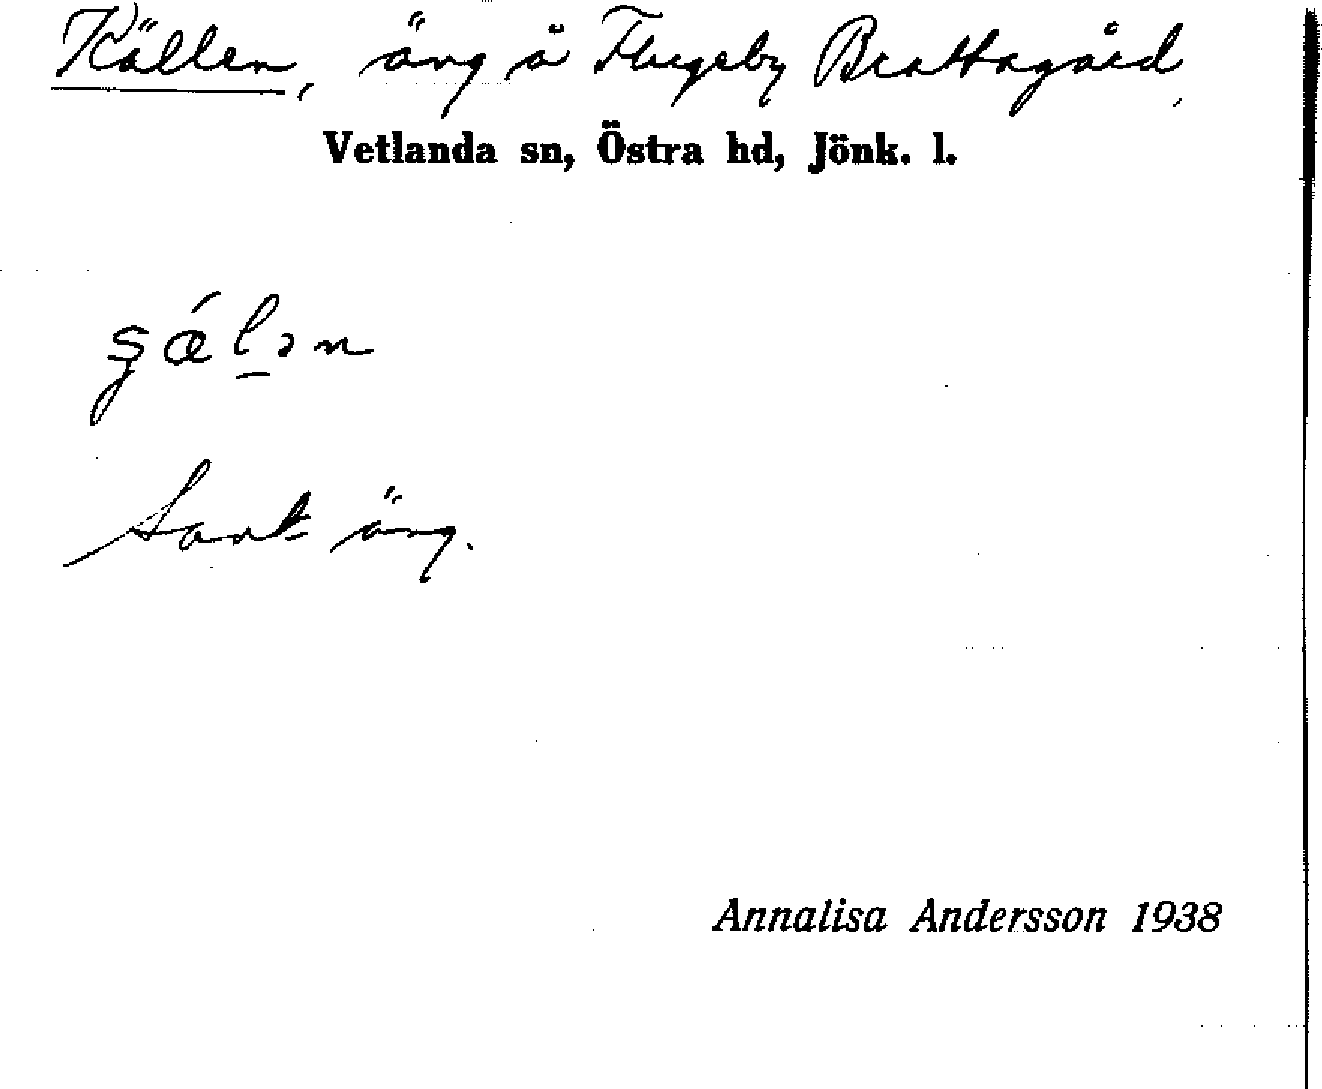 Källen, äng å Flugeby Brattagård,
Vetlanda sn, Östra hd, Jönk. l.
Sank äng.
Annalisa Andersson 1938